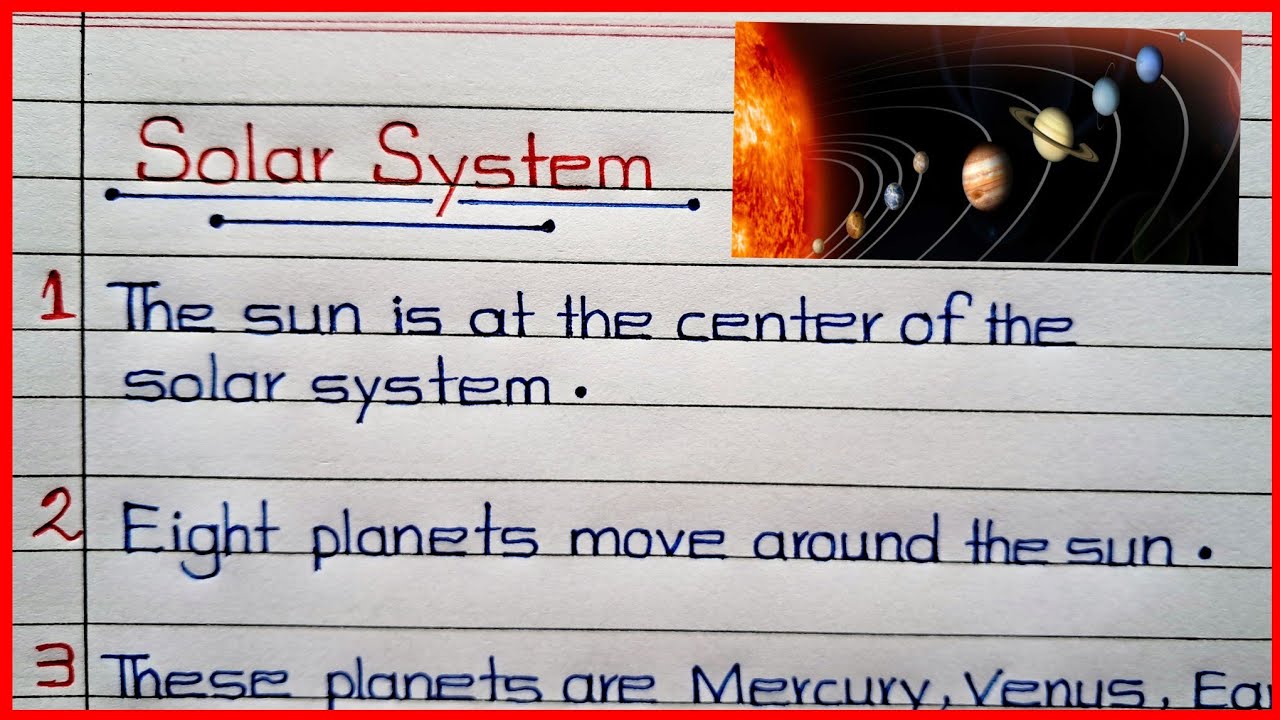 Solar System
1 The sun is at the center of the
solar system.
2 Eight planets move around the sun.
3 These planets are Mercury, Venus, Ea